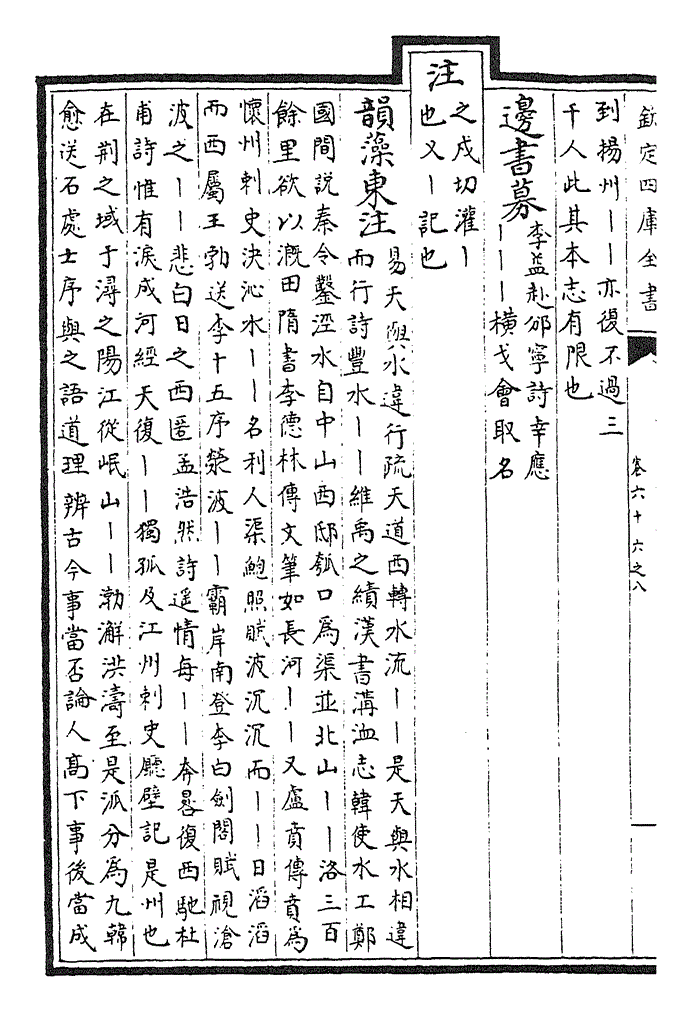 欽定四庫全書
卷六十六之八
到揚州丨丨亦復不過三
千人此其本志有限也
邊書募
李益赴邠寧詩幸應
丨丨丨橫戈會取名
注
之戍切灌丨
也又丨記也
韻藻東注
易天與水違行疏天道西轉水流丨丨是天與水相違
而行詩豐水丨丨維禹之績漢書溝洫志韓使水工鄭
國間說秦令鑿涇水自中山西邸瓠口為渠並北山丨丨洛三百
餘里欲以溉田隋書李德林傳文筆如長河丨丨又盧賁傳賁為
懷州刺史決沁水丨丨名利人渠鮑照賦波沉沉而丨丨日滔滔
而西屬王勃送李十五序滎波丨丨霸岸南登李白劍閣賦視滄
波之丨丨悲白日之西匿孟浩然詩遥情每丨丨奔晷復西馳杜
甫詩惟有淚成河經天復丨丨獨孤及江州刺史廳壁記是州也
在荆之域于潯之陽江從岷山丨丨渤澥洪濤至是派分為九韓
愈送石處士序與之語道理辨古今事當否論人髙下事後當成